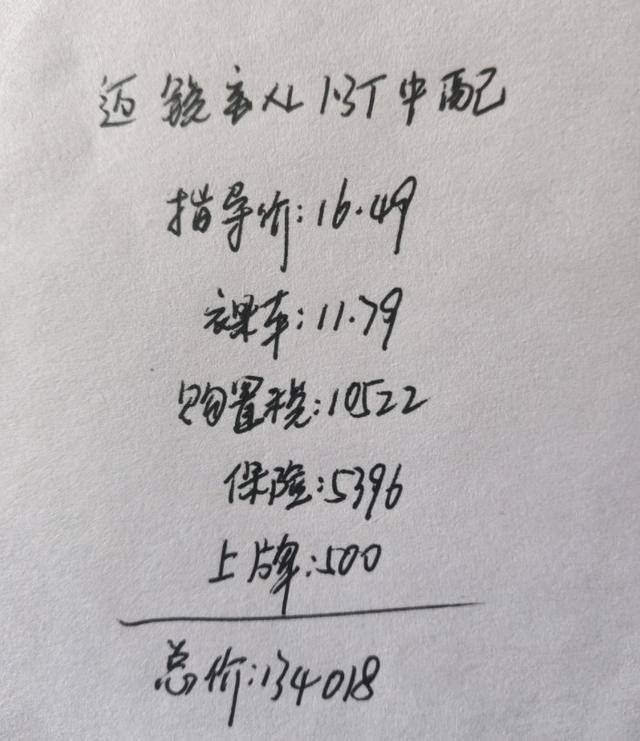 迈锐宝XL 1.3T中配
指导价:16.49
裸车:11.79
购置税:10522
保险:5396
上牌:500
总价:134018